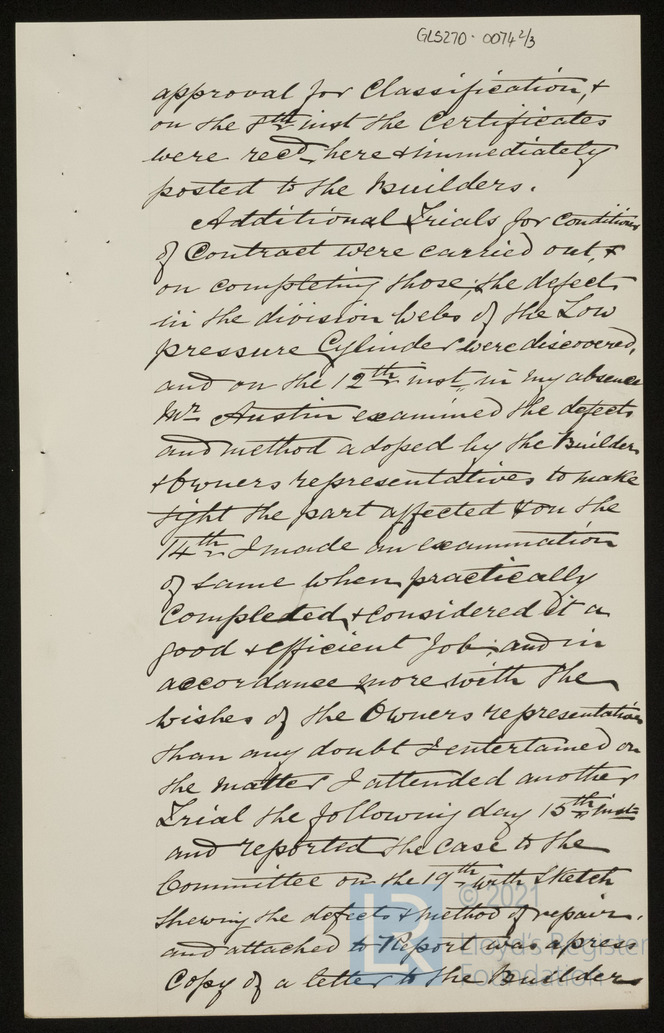 GLS270-0074 2/3
approval for Classification, &
on the 8th inst the Certificates
were recd here & immediately
posted to the Builders.
Additional Trials for Conditions
of Contract were carried out, &
on completing those, the defects
in the division webs of the Low
pressure Cylinder were discovered,
and on the 12th inst in my absence
Mr Austin examined the defects
and method adoped by the Builders
& Owners representatives to make
tight the part affected & on the
14th I made an examination
of same when practically
Completed, & considered it a
good & efficient Job; and in
accordanse more with the
wishes of the Owners representatives
than any doubt I entertained on
the matter I attended another
Trial the following day 15th inst
and reported the case to the
Committee on the 19th with Sketch
Shewing the defects & method of repair,
and attached to Report was a press
Copy of a letter to the Builders
© 2021
LR
Lloyd's Register
Foundation